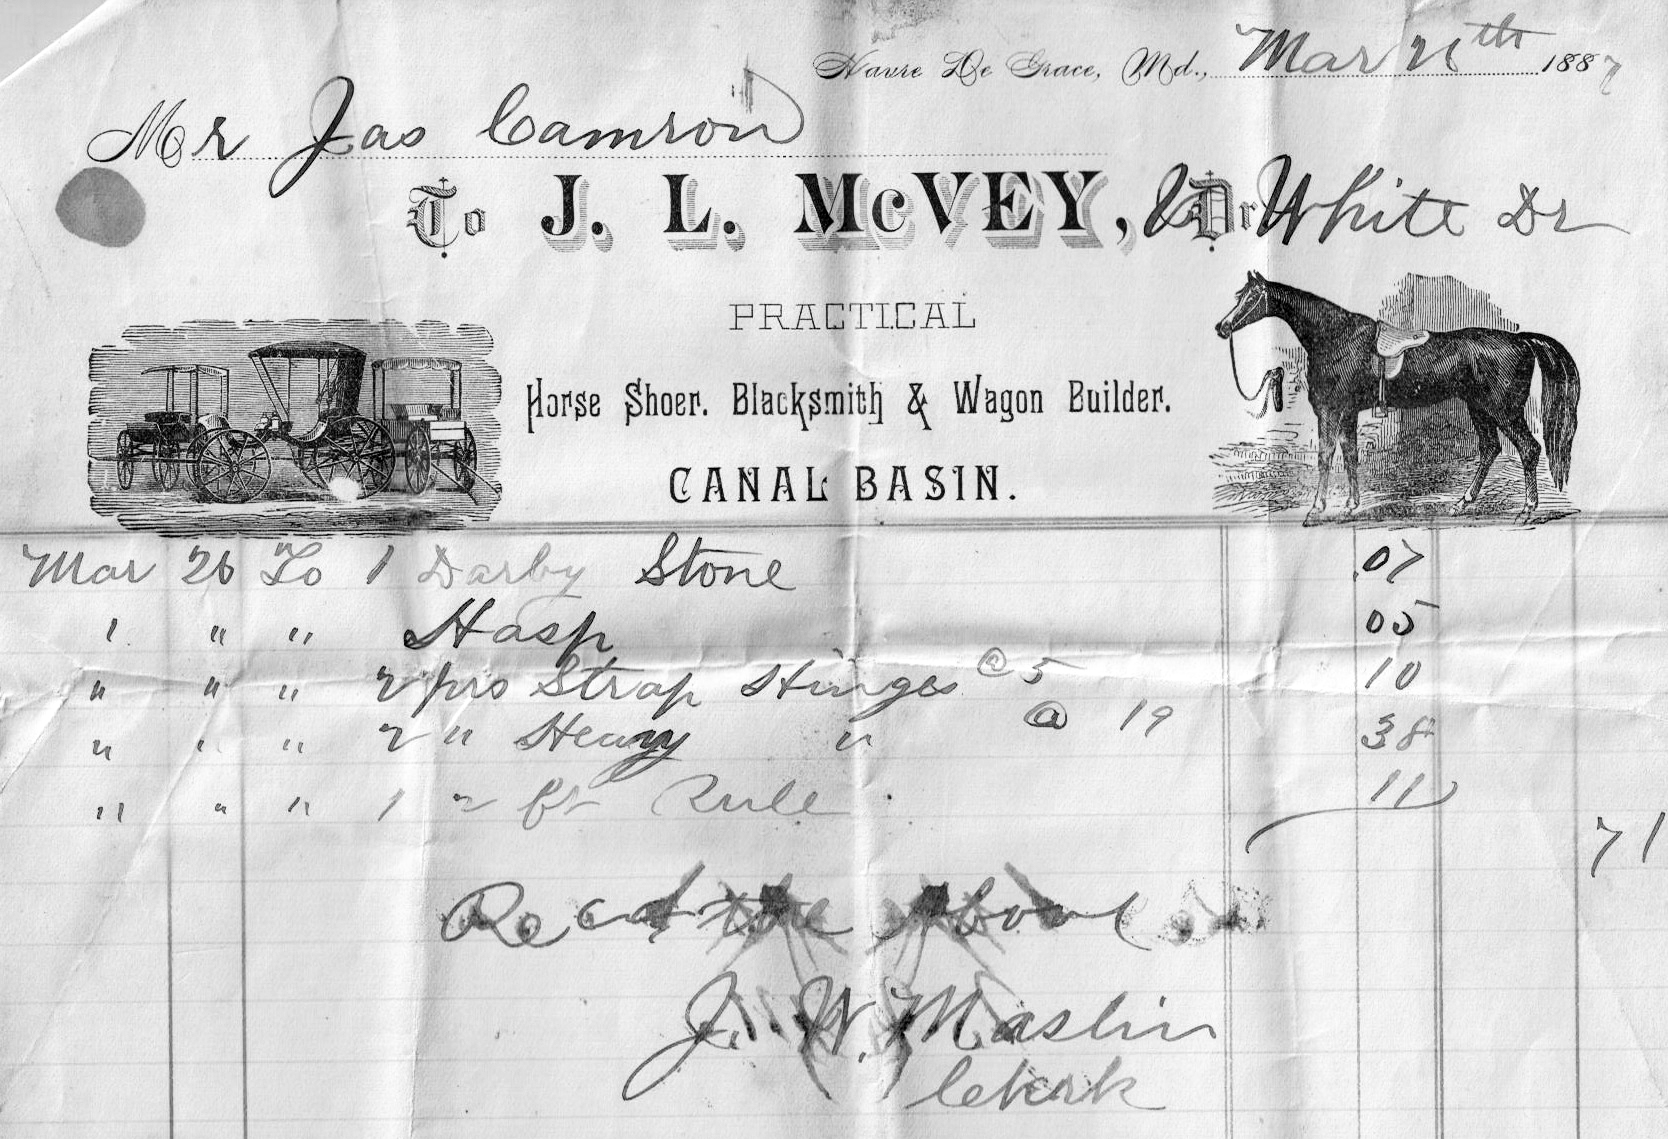 Havre De Grace, Md., Mar 26th 1887
Mr Jas Camron
To J. L. McVEY, & Dr White Dr
PRACTICAL
Horse Shoer. Blacksmith & Wagon Builder.
CANAL BASIN.
Mar 26 To 1 Darby Stone 07
" " " Hasp 05
" " " 2 prs Strap Hinges @ 5 10
" " " 2 " Heavy " @ 19 38
" " " 1 2 ft Rule 11
71
Recd the above
J. W. Maslin
Clerk